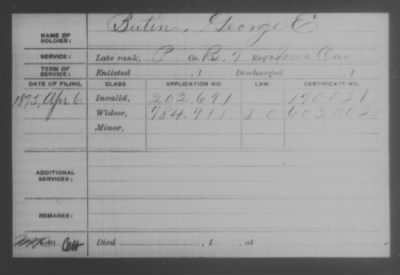 NAME OF SOLDIER: Butin, George E
SERVICE: Late rank, P Co. B, 7 Reg't Iowa Cav
TERM OF SERVICE: Enlisted , 1 Discharged , 1
DATE OF FILING. CLASS. APPLICATION NO. LAW. CERTIFICATE NO.
1875, Apr 6 Invalid, 202.691
Widow, 784.911
Minor,
ADDITIONAL SERVICES:
REMARKS:
Died , 1 , at